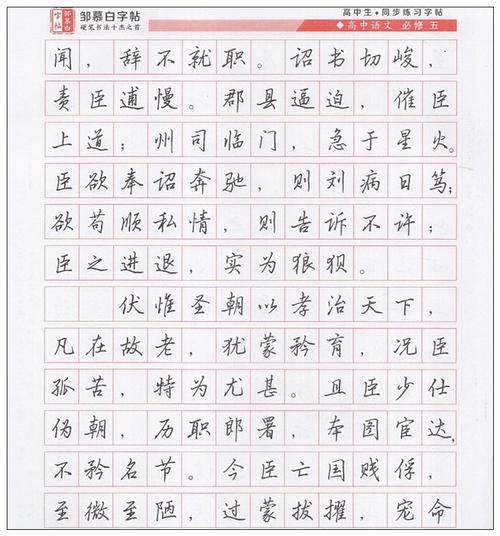 邹慕白字帖
硬笔书法十杰之首
高中生·同步练习字帖
高中语文 必修五
闻，辞不就职。诏书切峻，
责臣逋慢。郡县逼迫，催臣
上道；州司临门，急于星火。
臣欲奉诏奔驰，则刘病日笃；
欲苟顺私情，则告诉不许；
臣之进退，实为狼狈。
伏惟圣朝以孝治天下，
凡在故老，犹蒙矜育，况臣
孤苦，特为尤甚。且臣少仕
伪朝，历职郎署，本图宦达，
不矜名节。今臣亡国贱俘，
至微至陋，过蒙拔擢，宠命